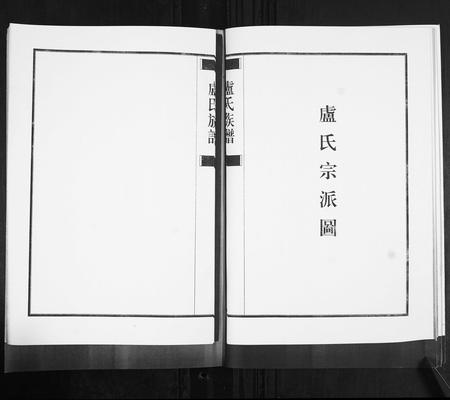 盧氏宗派圖
盧氏族譜
盧氏族譜